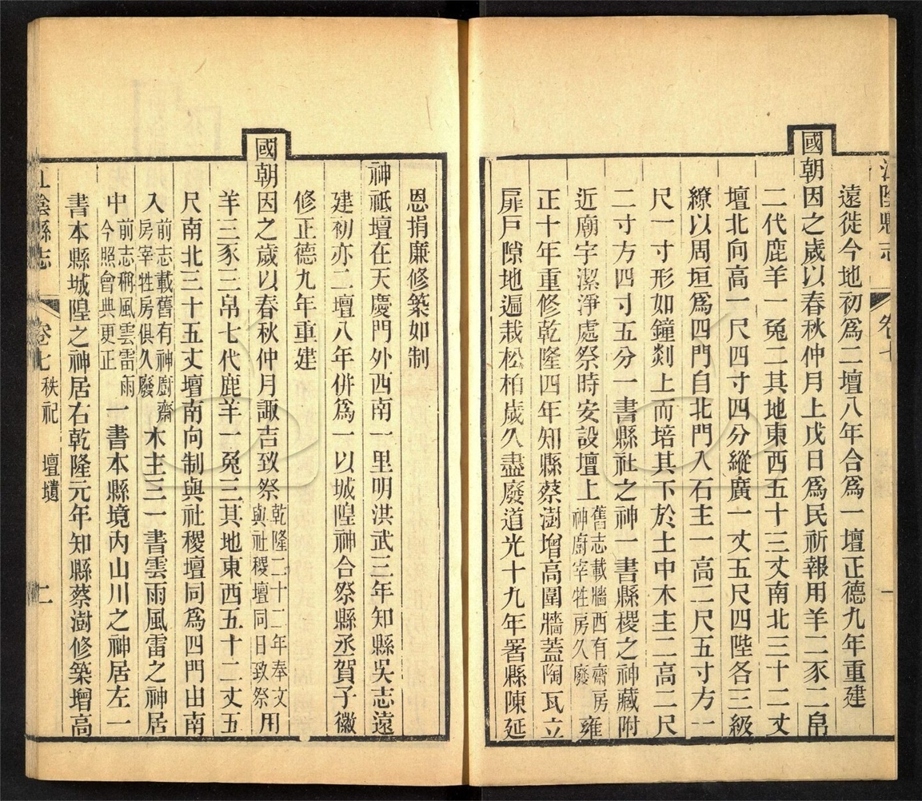 江陰縣志 卷七 一
遠徙今地初爲二壇八年合爲一壇正德九年重建
國朝因之歲以春秋仲月上戊日爲民祈報用羊二豕二帛
二代鹿羊一兔二其地東西五十三丈南北三十二丈
壇北向高一尺四寸四分縱廣一丈五尺四陛各三級
繚以周垣爲四門自北門入石主一高二尺五寸方一
尺一寸形如鐘剡上而培其下於土中木主二高二尺
二寸方四寸五分一書縣社之神一書縣稷之神藏附
近廟宇潔淨處祭時安設壇上舊志載牆西有齋房神廚宰牲房久廢雍
正十年重修乾隆四年知縣蔡澍增高圍牆蓋陶瓦立
扉戶隙地遍栽松柏歲久盡廢道光十九年署縣陳延
恩捐廉修築如制
神祇壇在天慶門外西南一里明洪武三年知縣吳志遠
建初亦二壇八年併爲一以城隍神合祭縣丞賀子徽
修正德九年重建
國朝因之歲以春秋仲月諏吉致祭乾隆二十二年奉文與社稷壇同日致祭用
羊三豕三帛七代鹿羊一兔三其地東西五十二丈五
尺南北三十五丈壇南向制與社稷壇同爲四門出南
入前志載舊有神廚齋房宰牲房俱久廢木主三一書雲雨風雷之神居
中前志稱風雲雷雨今照會典更正一書本縣境內山川之神居左一
書本縣城隍之神居右乾隆元年知縣蔡澍修築增高
江陰縣志 卷七 秩祀 壇壝 二